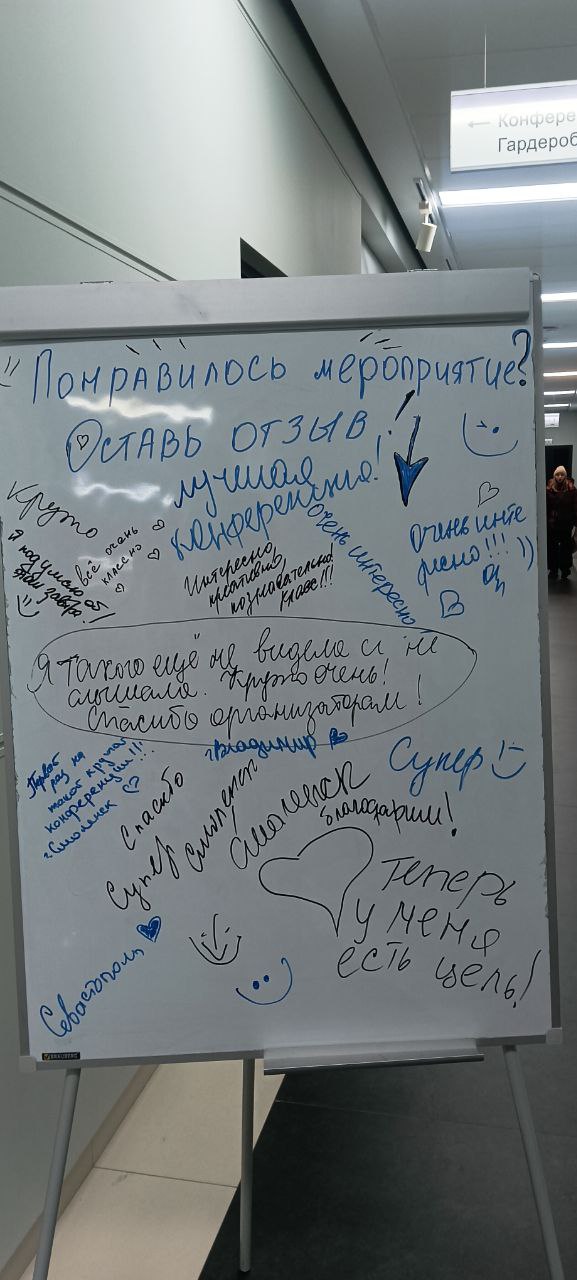 ← Конфере
Гардероб
Понравилось мероприятие?
Оставь отзыв!
лучшая
конференция!
Круто
всё очень
классно
Интересно,
креативно,
познавательно
класс!!!
Очень интересно
Очень инте
ресно!!! ))
Я такого ещё не видела и не
слышала. Круто очень!
Спасибо организаторам!
г.Владимир
Первый
раз на
такой крутой
конференции!!!
г.Смоленск
Спасибо
Супер
Смоленск
Смоленск
Супер
Благодарим!
Теперь
у меня
есть цель!
Севастополь
BRAUBERG